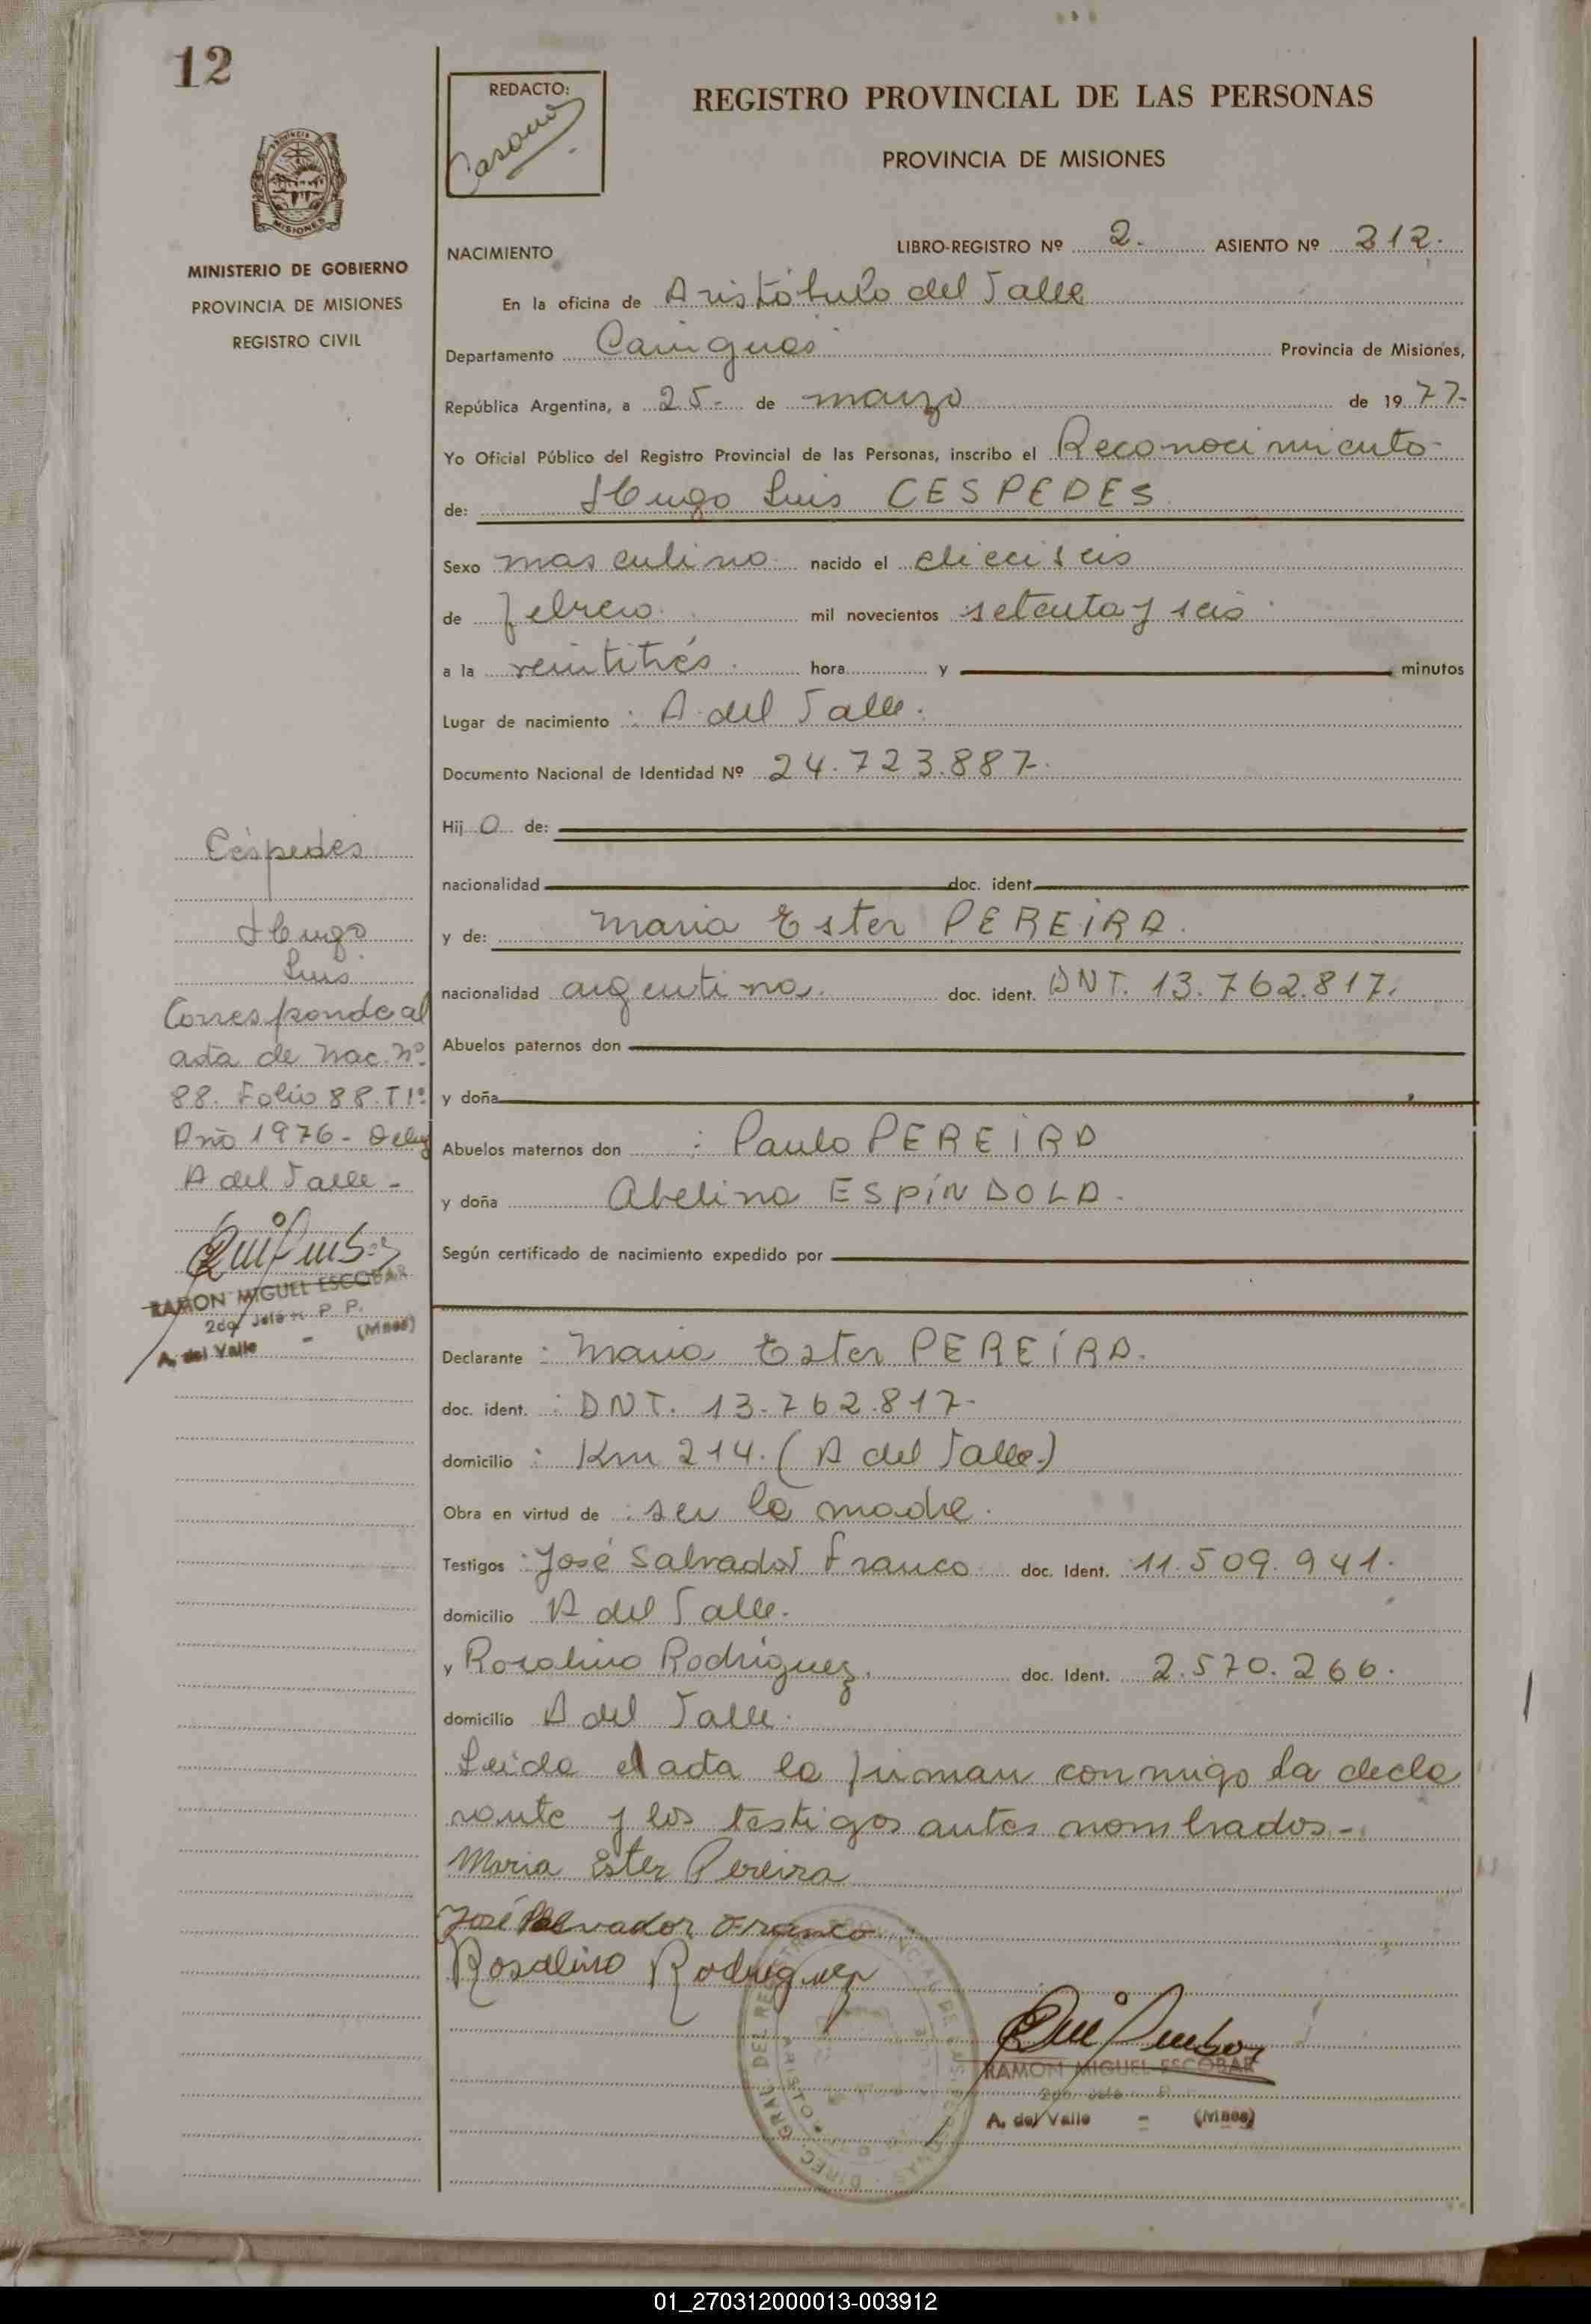 12
REDACTO:
REGISTRO PROVINCIAL DE LAS PERSONAS
PROVINCIA DE MISIONES
PROVINCIA
MISIONES
MINISTERIO DE GOBIERNO
PROVINCIA DE MISIONES
REGISTRO CIVIL
NACIMIENTO
LIBRO-REGISTRO Nº 2. ASIENTO Nº 212.
En la oficina de Aristóbulo del Valle
Departamento Cainguas Provincia de Misiones,
República Argentina, a 25- de marzo de 1977-
Yo Oficial Público del Registro Provincial de las Personas, inscribo el Reconocimiento
de: Hugo Luis CESPEDES
Sexo masculino nacido el dieciseis
de febrero. mil novecientos setenta y seis
a la veintitrés. hora y minutos
Lugar de nacimiento : A. del Valle.
Documento Nacional de Identidad Nº 24.723.887.
Hij o de:
nacionalidad doc. ident.
y de: Maria Ester PEREIRA.
nacionalidad argentina. doc. ident. DNI. 13.762.817.
Abuelos paternos don
y doña
Abuelos maternos don : Paulo PEREIRA
y doña Abelina ESPÍNDOLA.
Según certificado de nacimiento expedido por
Declarante : Maria Ester PEREIRA.
doc. ident. : DNI. 13.762.817-
domicilio : Km 214. (A del Valle.)
Obra en virtud de : ser la madre.
Testigos : José Salvador Franco doc. Ident. 11.509.941.
domicilio A del Valle.
y Rosalino Rodriguez. doc. Ident. 2.570.266.
domicilio A del Valle.
Leida el acta la firman conmigo la decla
rante y los testigos antes nombrados-
Maria Ester Pereira
José Salvador Franco
Rosalino Rodriguez
RAMON MIGUEL ESCOBAR
A. del Valle - (Mnes)
Céspedes
Hugo
Luis
Corresponde al
acta de Nac. Nº
88. Folio 88. T 1º
Año 1976-
A del Valle-
RAMON MIGUEL ESCOBAR
2do. Jefe R. P. P.
A. del Valle - (Mnes)
01_270312000013-003912